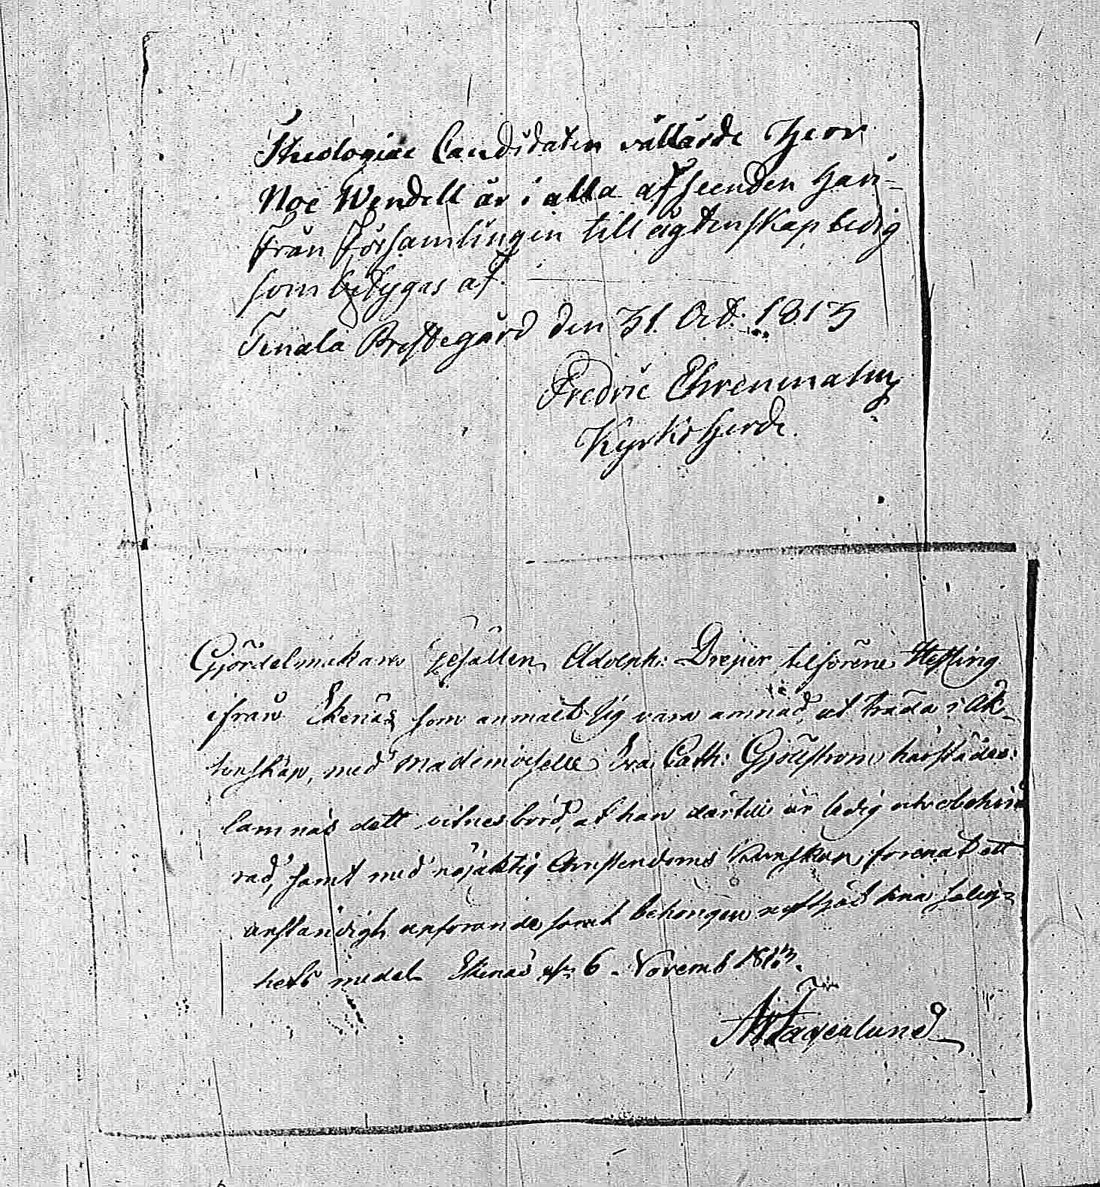 Theologiæ Candidaten vällärde Herr
Noë Wendell är i alla afseenden häri-
från församlingen till ägtenskap ledig
som betygas af.
Tenala Prestegård den 31. Oct: 1813
Fredric Ehrenmalm
Kyrkoherde.
Gjördelmakare Gesällen Adolph: Dreijer tilförene Hefling
ifrån Ekenäs som anmält sig vara ämnad at träda i Äk-
tenskap, med Mademoiselle Eva Cath: Gjöström härstädes:
lämnas dett vitnesbörd, at han därtill är ledig och obehin
rad, samt med nöjaktig Christendoms kunskap, förenat ett
anständigt upförande samt behörigen nyttjat sina salig-
hets medel. Ekenäs 6. Novemb 1813.
Fagerlund